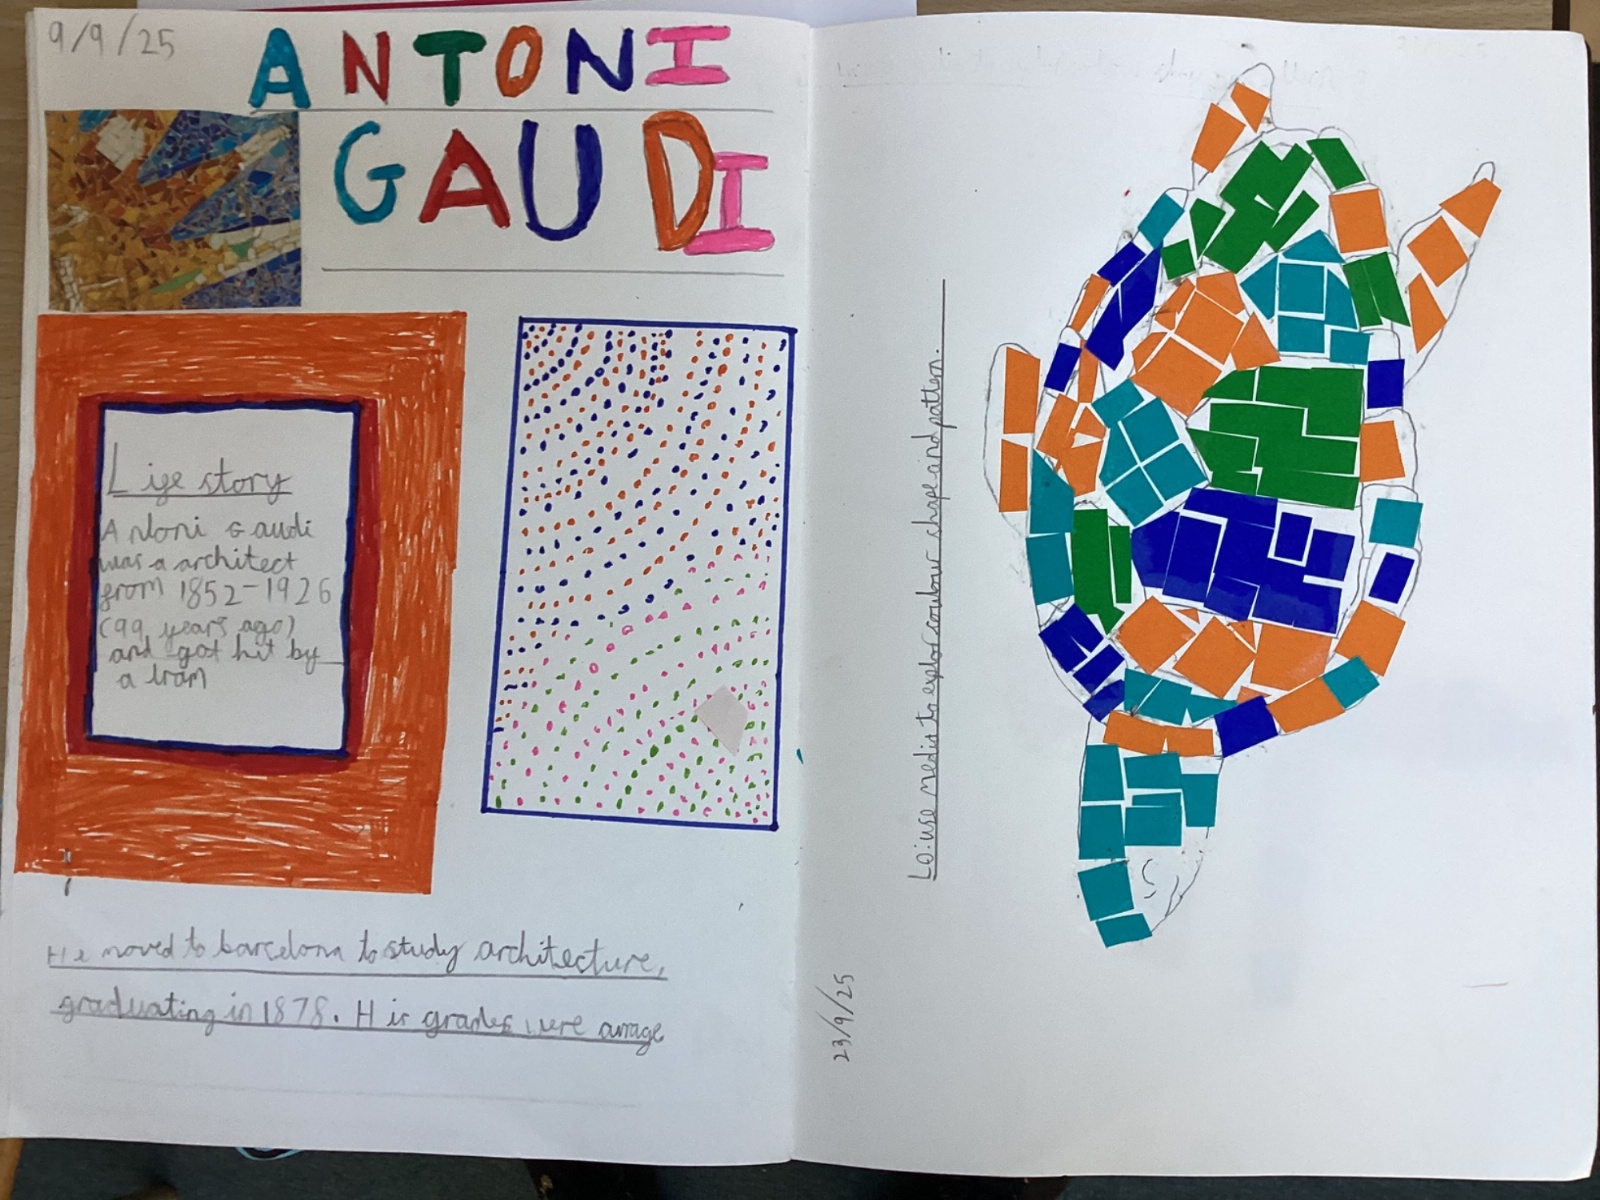 9/9/25
ANTONI
GAUDI
Life story
Antoni Gaudi
was a architect
from 1852-1926
(99 years ago)
and got hit by
a tram
He moved to barcelona to study architecture,
graduating in 1878. His grades were avrage
LO: use media to explor colour shape and pattern.
23/9/25